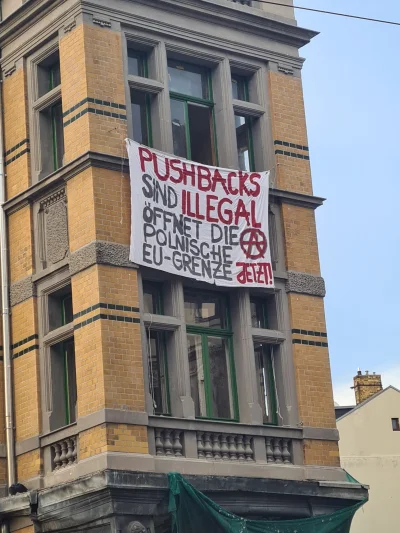 PUSHBACKS
SIND ILLEGAL
ÖFFNET DIE
POLNISCHE
EU-GRENZE JETZT!